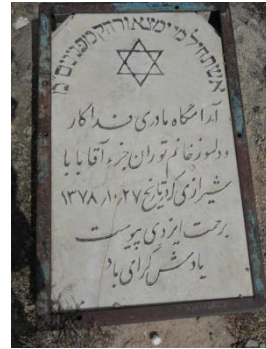 אשת חיל מי ימצא ורחק מפנינים
آرامگاه مادری فداکار
و دلسوز خانم توران جزء آقا بابا
شیرازی که در تاریخ ۱۳۷۸/۱۰/۲۷
برحمت ایزدی پیوست
یادش گرامی باد